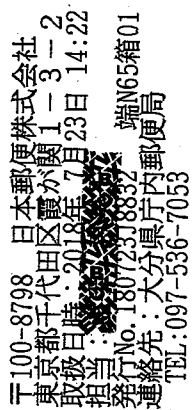 〒100-8798 日本郵便株式会社
東京都千代田区霞が関1-3-2
取扱日時:2018年 7月23日 14:22
担当:
発行No.180723J8832 端N65箱01
連絡先:大分県庁内郵便局
TEL:097-536-7053